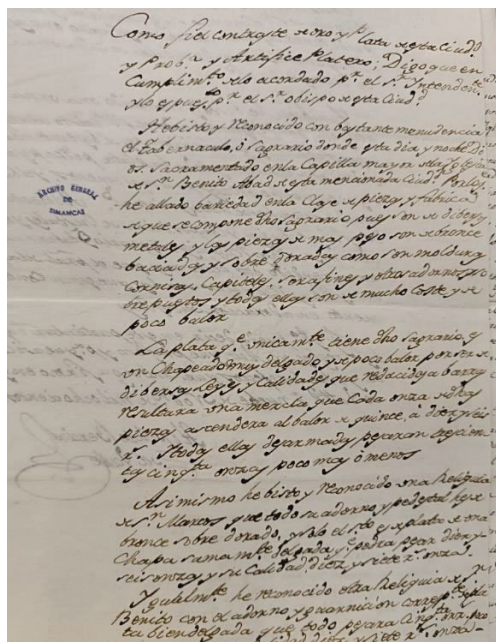 Como fiel contraste de oro y plata de esta Ciud.d
y Prob.r y Artifice Platero: Digo que en
Cumplim.to de lo acordado p.r el S.r Intendente
y lo espues.to p.r el S.r obispo de esta Ciud.d
He bisto, y reconocido con bastante menudencia
el tabernaculo, ô sagrario donde esta dia y noche Di-
os Sacramentado en la Capilla mayor de la Yglesia
de S.n Benito Abad de esta mencionada Ciud.d
he allado bariedad en la Clase de piezas, y fabrica
de que se compone dho Sagrario pues son de diberss
metales y las piezas de mas peso son de bronce
baciadas y sobre doradas como son molduras
Cornisas, Capiteles, serafines, y otros adornos so-
brepuestos y todas ellas son de mucho coste y de
poco balor
La plata q.e unicam.te tiene dho Sagrario, es
un Chapeado muy delgado y de poco balor por ser de
dibersas leyes y Calidades que reducidas a barra
resultara una mezcla que Cada onza de dhas
piezas ascendera al balor de quince, â diez y seis
r.s todas ellas desarmadas pesaran
ta y cinq.ta onzas poco mas ô menos
Asimismo he bisto y reconocido una Reliquia
de S.n Marcos que todo su adorno, y pedestal
bronce sobre dorado, y solo el sto es plata de una
Chapa sumam.te delgada q.e podra pesar diez y
seis onzas y su Calidad diez, y siete r.s onza.
Ygualm.te he reconocido otra Reliquia de S.n
Benito con el adorno y guarnicion
ta bien delgada que todo pesara
ARCHIVO GENERAL
DE
SIMANCAS